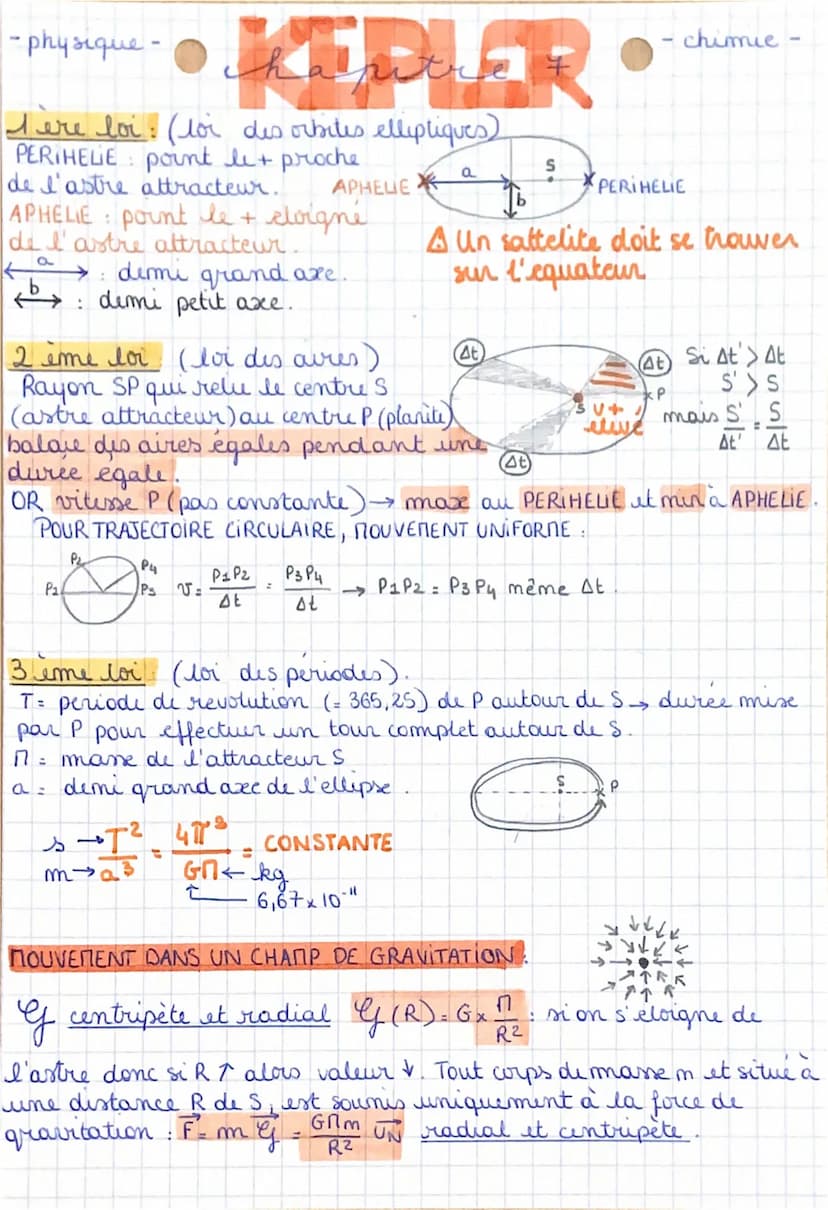 - physique -
KEPLER
chapitre 7
- chimie -
1ère loi : (loi des orbites elliptiques)
PERIHELIE : point le + proche
de l'astre attracteur.
APHELIE
a
b
S
PERIHELIE
APHELIE : point le + eloigné
de l'astre attracteur.
⚠ Un sattelite doit se trouver
sur l'equateur
a : demi grand axe.
b : demi petit axe.
2 ème loi : (loi des aires)
Rayon SP qui relie le centre S
(astre attracteur) au centre P (planète)
balaie des aires égales pendant une
durée egale.
Δt
Δt
Δt
S
P
v +
élevé
Si Δt' > Δt
S' > S
mais S'/Δt' = S/Δt
OR vitesse P (pas constante) → max au PERIHELIE et min à APHELIE.
POUR TRAJECTOIRE CIRCULAIRE, MOUVEMENT UNIFORME :
P2
P4
P1
P3
v = P1P2/Δt = P3P4/Δt → P1P2 = P3P4 même Δt.
3 ème loi : (loi des périodes).
T = periode de revolution (= 365,25) de P autour de S → durée mise
par P pour effectuer un tour complet autour de S.
M = masse de l'attracteur S
a = demi grand axe de l'ellipse.
S
P
s → T²/a³ = 4π²/GM = CONSTANTE
m →
← kg
6,67 x 10⁻¹¹
MOUVEMENT DANS UN CHAMP DE GRAVITATION :
G centripète et radial G(R) = G x M/R² : si on s'eloigne de
l'astre donc si R ↑ alors valeur ↓. Tout corps de masse m et situé à
une distance R de S, est soumis uniquement à la force de
gravitation : F = m G = GMm/R² UN radial et centripète.